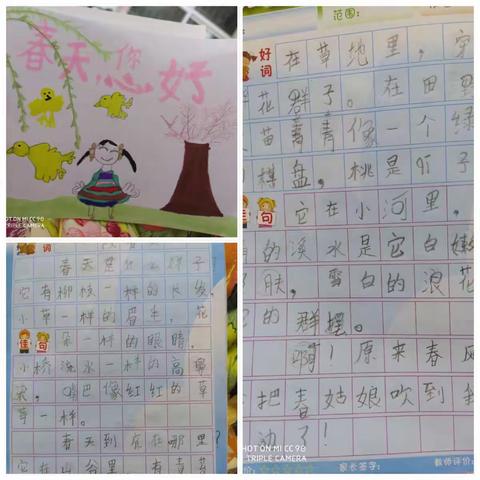 春天,您好
OT ON MI CC 9
TRIPLE CAMERA
词
春天是什么样子?
它有柳枝一样的长发,
小草一样的眉毛,花
佳句
朵一样的眼睛,
小桥流水一样的高鼻
梁,嘴巴像红红的草
一样。
春天到底在哪里?
它在山谷里,有青草
TRIPLE CAMERA
范围:
好词
在草地里,穿
花群子。在田野
苗青青像一个绿
棋盘,桃是叶子
句
它在小河里,
的溪水是它白嫩
肤,雪白的浪花
的群摆。
啊!原来春风
把春姑娘吹到我
边了!
HOT ON MI CC 9
TRIPLE CAMERA
家长签字:
教师评价: